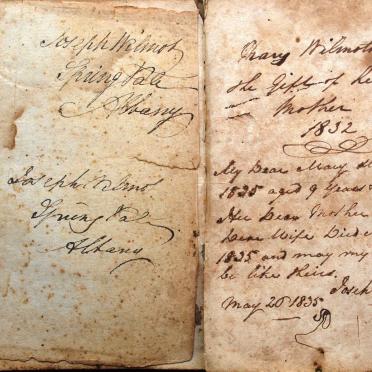 Joseph Wilmot
Spring Vale
Albany
Joseph Wilmot
Spring Vale
Albany
Mary Wilmot
the Gift of her
Mother
1832
My Dear Mary
1835 aged 9 years &
Her Dear Mother
Dear Wife Died
1835 and may my
be like theirs.
Joseph
May 20 1835